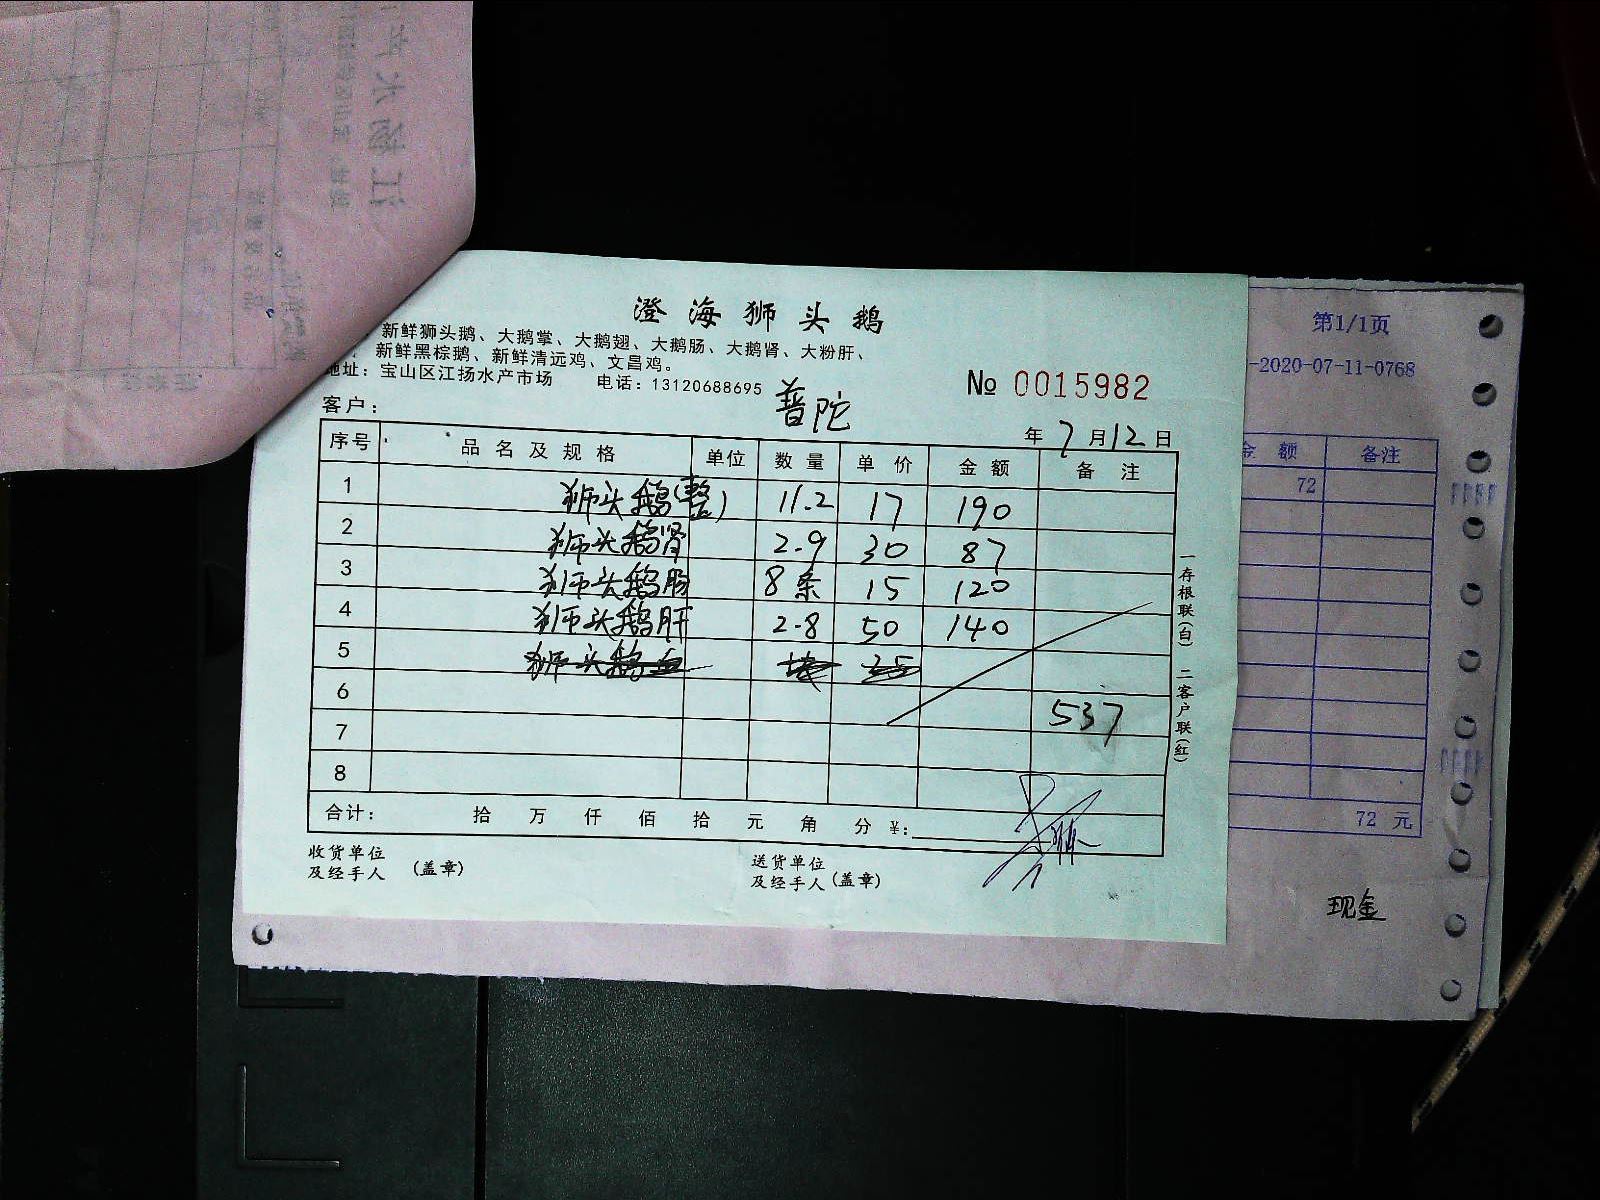 澄海狮头鹅
新鲜狮头鹅、大鹅掌、大鹅翅、大鹅肠、大鹅肾、大粉肝、
新鲜黑棕鹅、新鲜清远鸡、文昌鸡。
地址：宝山区江扬水产市场 电话：13120688695
普陀
№ 0015982
客户：
年 7 月 12 日
序号 品名及规格 单位 数量 单价 金额 备注
1 狮头鹅(整) 11.2 17 190
2 狮头鹅肾 2.9 30 87
3 狮头鹅肠 8条 15 120
4 狮头鹅肝 2.8 50 140
5 狮头鹅血
6 537
7
8
合计： 拾 万 仟 佰 拾 元 角 分 ¥:
收货单位
及经手人 (盖章)
送货单位
及经手人 (盖章)
一存根联(白) 二客户联(红)
第1/1页
-2020-07-11-0768
金额 备注
72
72 元
现金